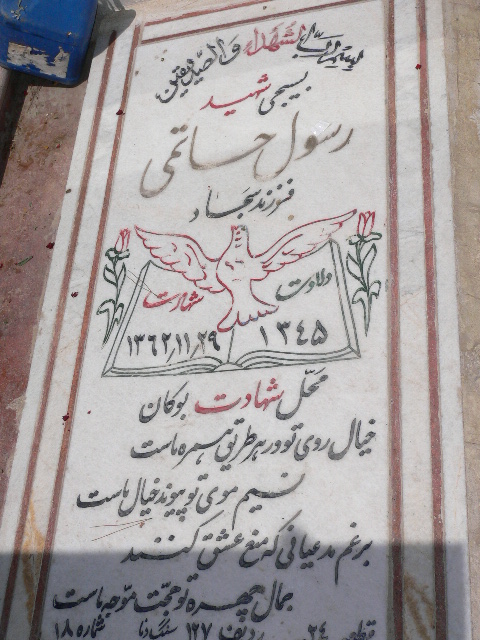 بسم رب الشهداء والصدیقین
بسیجی شهید
رسول حاتمی
فرزند سجاد
ولادت
شهادت
۱۳۴۵
۱۳۶۲٫۱۱٫۲۹
محل شهادت بوکان
خیال روی تو در هر طریق همره ماست
نسیم موی تو پیوند خیال هاست
برغم مدعیانی که منع عشق کنند
جمال چهره تو حجت موجه ماست
قطعه ۲۴ ردیف ۱۲۷ شماره ۱۸